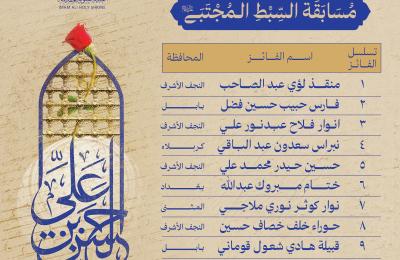 IMAM ALI HOLY SHRINE
مُسَابَقَةُ السِّبْطِ الْمُجْتَبَى
تسلسل الفائز اسم الفائز المحافظة
١ منقذ لؤي عبد الصاحب النجف الأشرف
٢ فارس حبيب حسين فضل بابل
٣ انوار فلاح عبدنور علي النجف الأشرف
٤ نبراس سعدون عبد الباقي كربلاء
٥ حسين حيدر محمد علي النجف الأشرف
٦ ختام مبروك عبدالله بغداد
٧ نوار كوثر نوري ملاجي المثنى
٨ حوراء خلف خصاف حسين النجف الأشرف
٩ قبيلة هادي شعول قوماني بابل
حسن بن علي